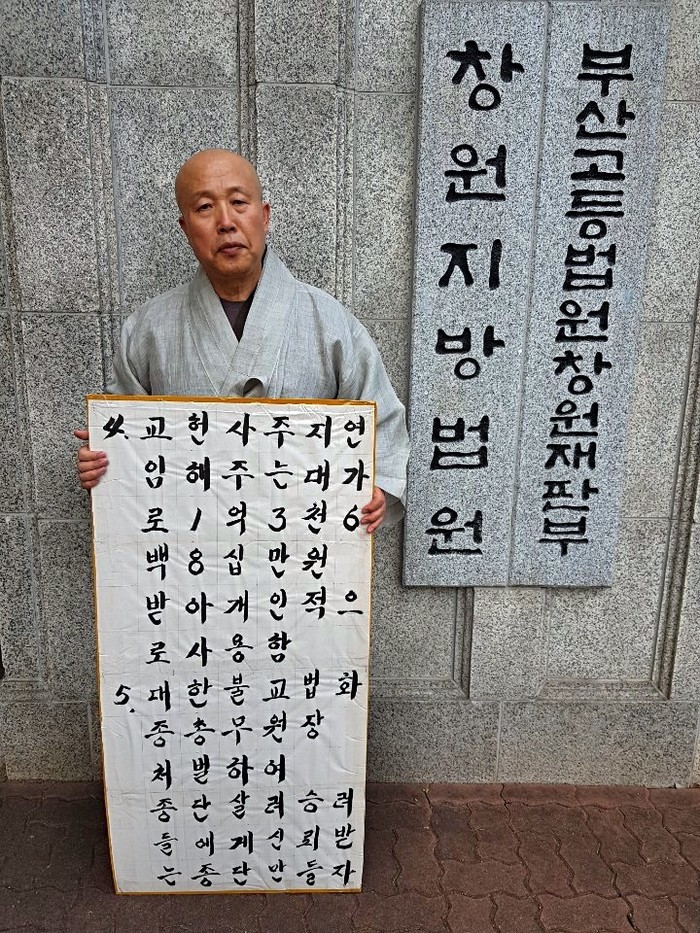 4. 교헌사주지연
임해주는대가
로1억3천6
백8십만원
받아개인적으
로사용함
5. 대한불교법화
종총무원장
처벌하여
종단살려승려
들에게신뢰받
는종단만들자
창원지방법원
부산고등법원창원재판부